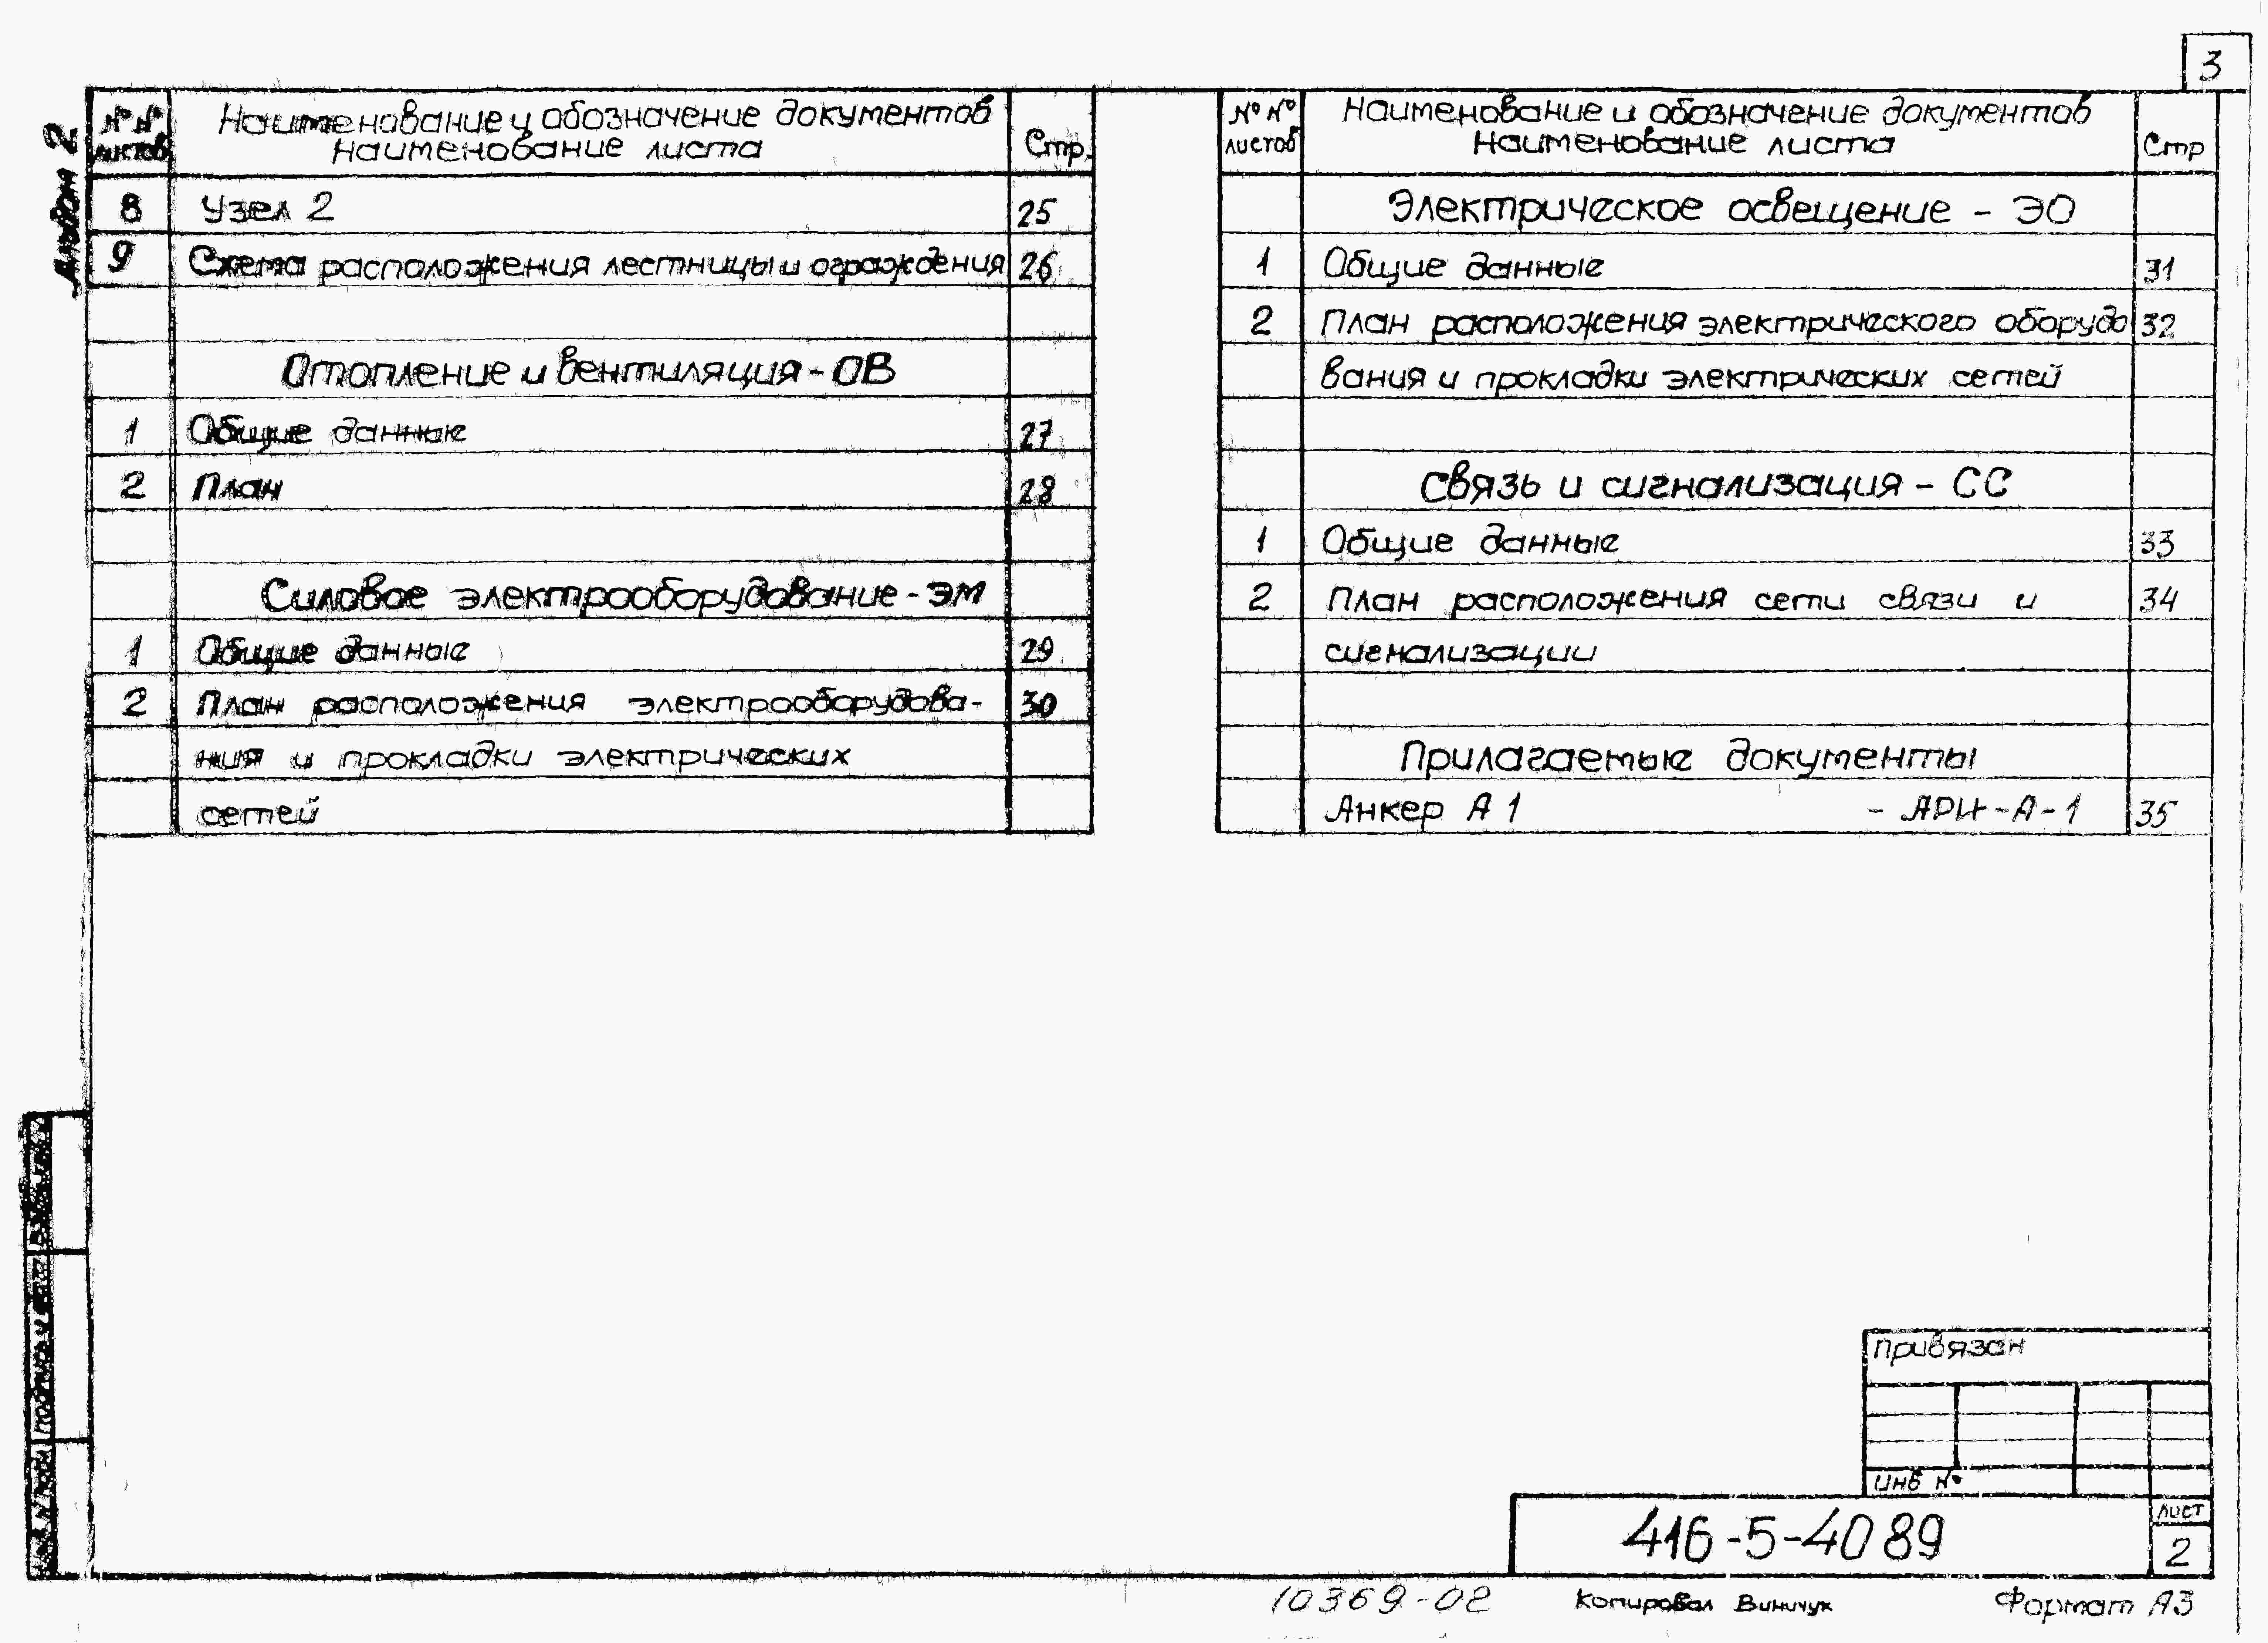 3
Альбом 2
№ № листов
Наименование и обозначение документов
Наименование листа
Стр.
8 Узел 2 25
9 Схема расположения лестницы и ограждения 26
Отопление и вентиляция - ОВ
1 Общие данные 27
2 План 28
Силовое электрооборудование - ЭМ
1 Общие данные 29
2 План расположения электрооборудова- 30
ния и прокладки электрических
сетей
№ № листов
Наименование и обозначение документов
Наименование листа
Стр
Электрическое освещение - ЭО
1 Общие данные 31
2 План расположения электрического оборудо 32
вания и прокладки электрических сетей
Связь и сигнализация - СС
1 Общие данные 33
2 План расположения сети связи и 34
сигнализации
Прилагаемые документы
Анкер А 1 - АРИ - А - 1 35
Привязан
Инв №
416-5-40 89
Лист
2
10369-02
Копировал Виничук
Формат А3
подпись и дата